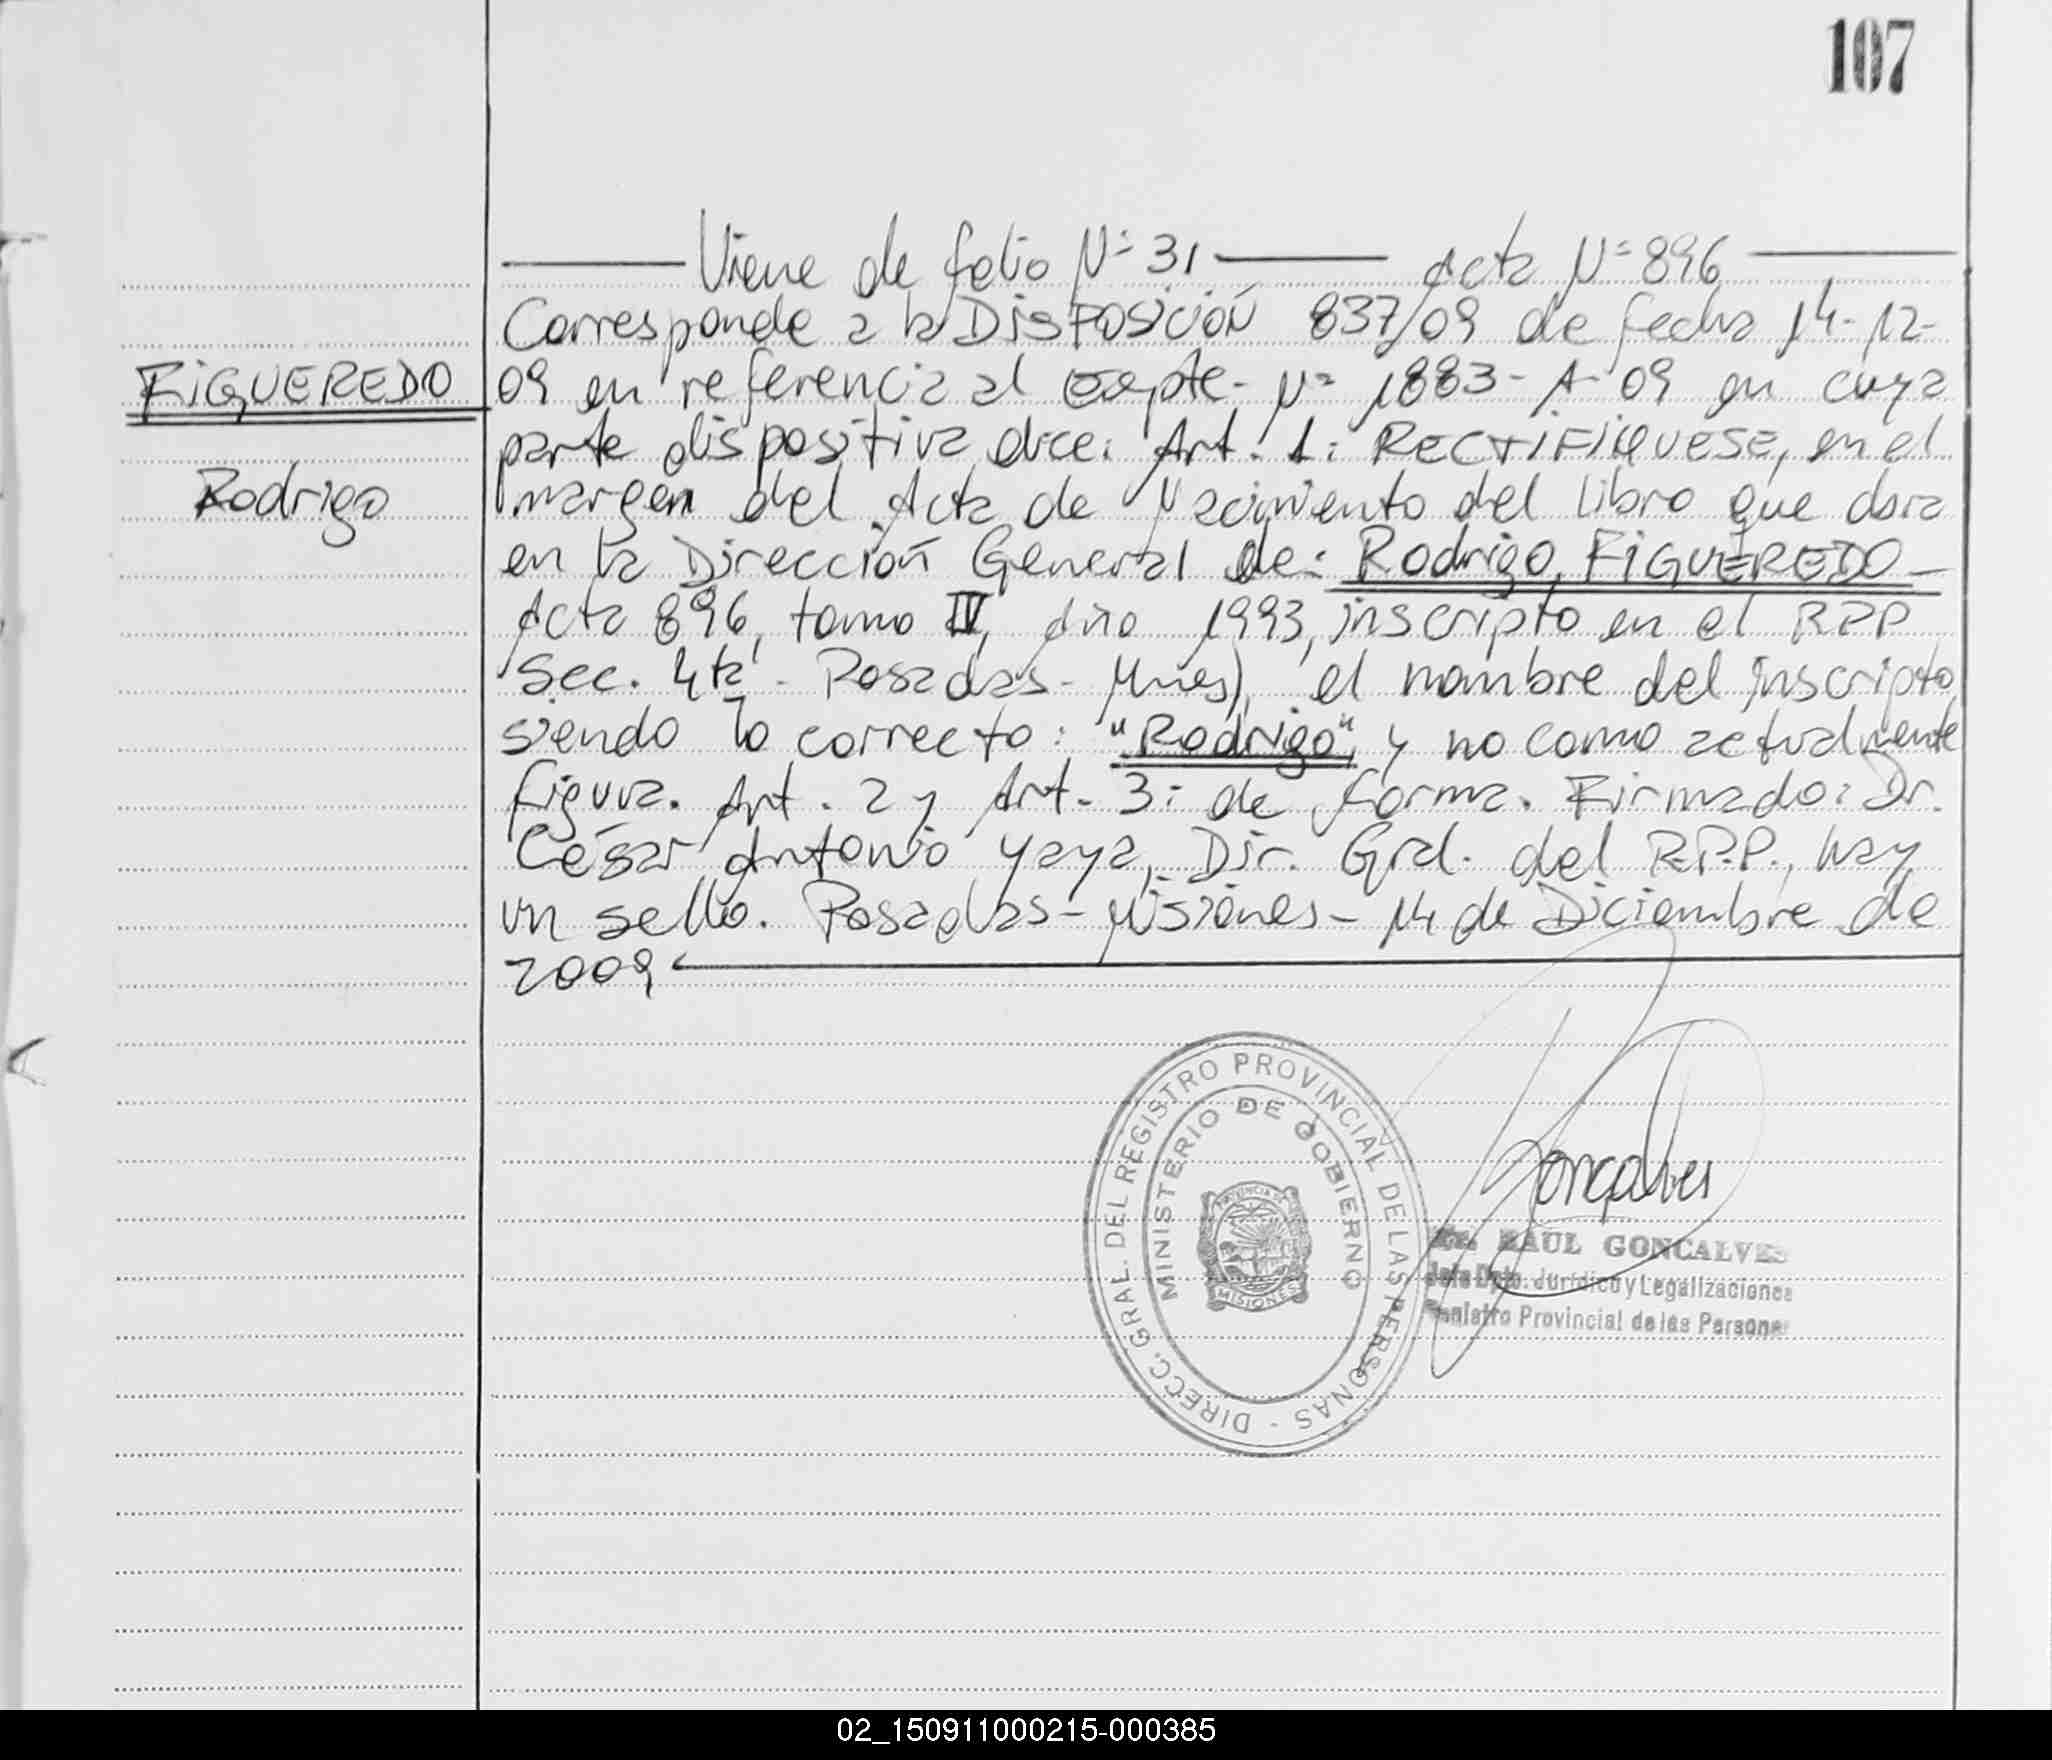 107
Viene de folio Nº 31 Acta Nº 896
Corresponde a la DISPOSICIÓN 837/09 de fecha 14-12-
FIGUEREDO
09 en referencia al Expte. Nº 1883-A-09 en cuya
parte dispositiva dice: Art. 1: RECTIFIQUESE, en el
Rodrigo
margen del Acta de Nacimiento del libro que obra
en la Dirección General de: Rodrigo FIGUEREDO
Acta 896, tomo IV, año 1993, inscripto en el RPP
Sec. 4ta - Posadas - Mnes), el nombre del inscripto
siendo lo correcto: "Rodrigo", y no como actualmente
figura. Art. 2 y Art. 3: de forma. Firmado: Dr.
César Antonio Yaya, Dir. Gral. del R.P.P., hay
un sello. Posadas - Misiones - 14 de Diciembre de
2009
DIRECC. GRAL. DEL REGISTRO PROVINCIAL DE LAS PERSONAS -
MINISTERIO DE GOBIERNO
PROVINCIA DE
MISIONES
Goncalves
RAUL GONCALVES
Jefe Dpto. Jurídico y Legalizaciones
Registro Provincial de las Personas
02_150911000215-000385